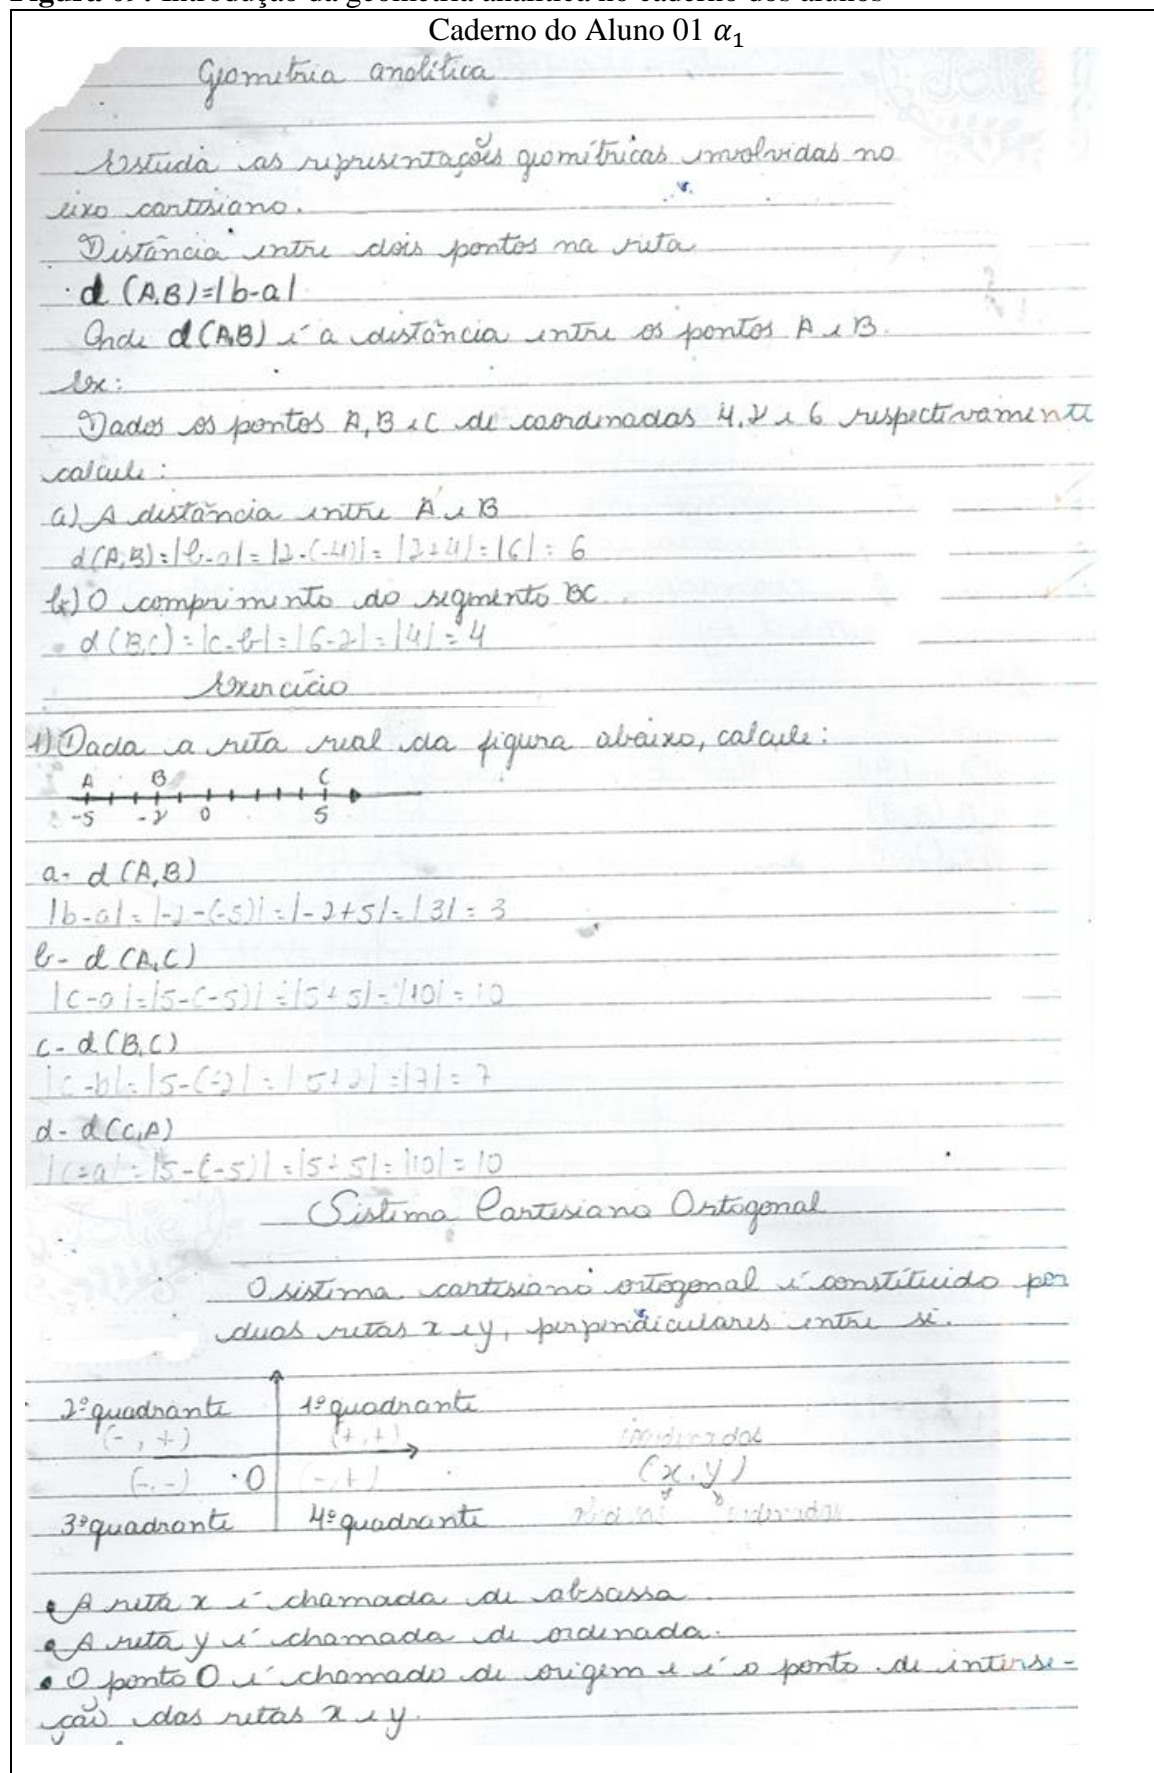 Figura 09: Introdução da geometria analítica no caderno dos alunos
Caderno do Aluno 01 α₁
Geometria analítica
Estuda as representações geométricas envolvidas no
eixo cartesiano.
Distância entre dois pontos na reta
d (A,B)=|b-a|
Onde d(A,B) é a distância entre os pontos A e B.
Ex:
Dados os pontos A, B e C de coordenadas 4, 2 e 6 respectivamente
calcule:
a) A distância entre A e B
d(A,B)=|b-a|=|2-(-4)|=|2+4|=|6|=6
b) O comprimento do segmento BC
d(B,C)=|c-b|=|6-2|=|4|=4
Exercício
1) Dada a reta real da figura abaixo, calcule:
A B C
-5 -2 0 5
a- d(A,B)
|b-a|=|-2-(-5)|=|-2+5|=|3|=3
b- d(A,C)
|c-a|=|5-(-5)|=|5+5|=|10|=10
c- d(B,C)
|c-b|=|5-(-2)|=|5+2|=|7|=7
d- d(C,A)
|c-a|=|5-(-5)|=|5+5|=|10|=10
Sistema Cartesiano Ortogonal
O sistema cartesiano ortogonal é constituido por
duas retas x e y, perpendiculares entre si.
2º quadrante 1º quadrante
(-,+) (+,+)
(-,-) O (-,+) (x,y)
3º quadrante 4º quadrante
A reta x é chamada de absassa
A reta y é chamada de ordenada.
O ponto O é chamado de origem e é o ponto de interse-
ção das retas x e y.